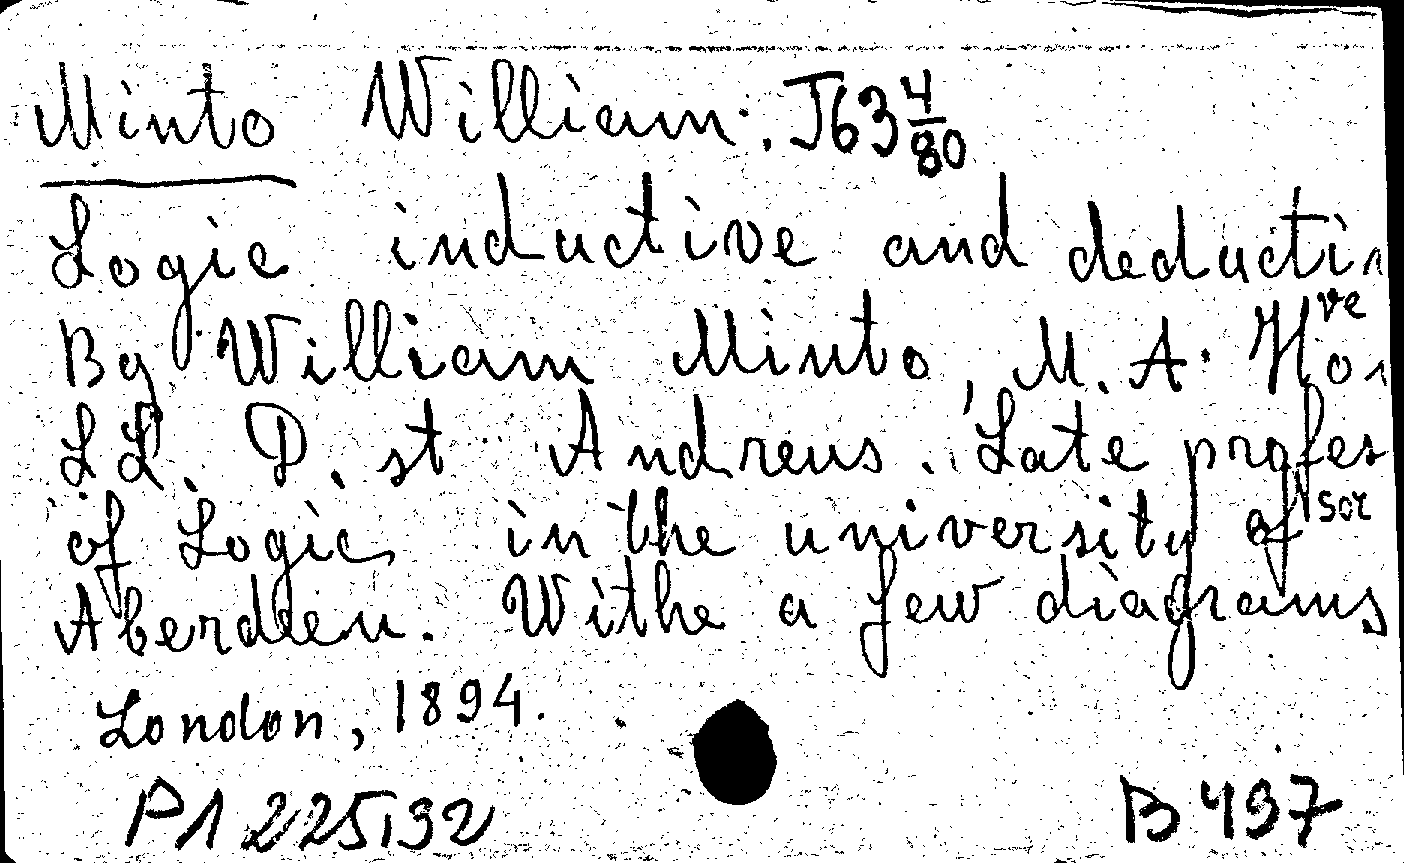 Minto William. J63 4/80
Logic inductive and deductive
By William Minto, M. A. Hon
LL. D. st Andreus. Late professor
of Logic in the university of
Aberdeen. Withe a few diagrams
London, 1894.
P1 225,32
B 497